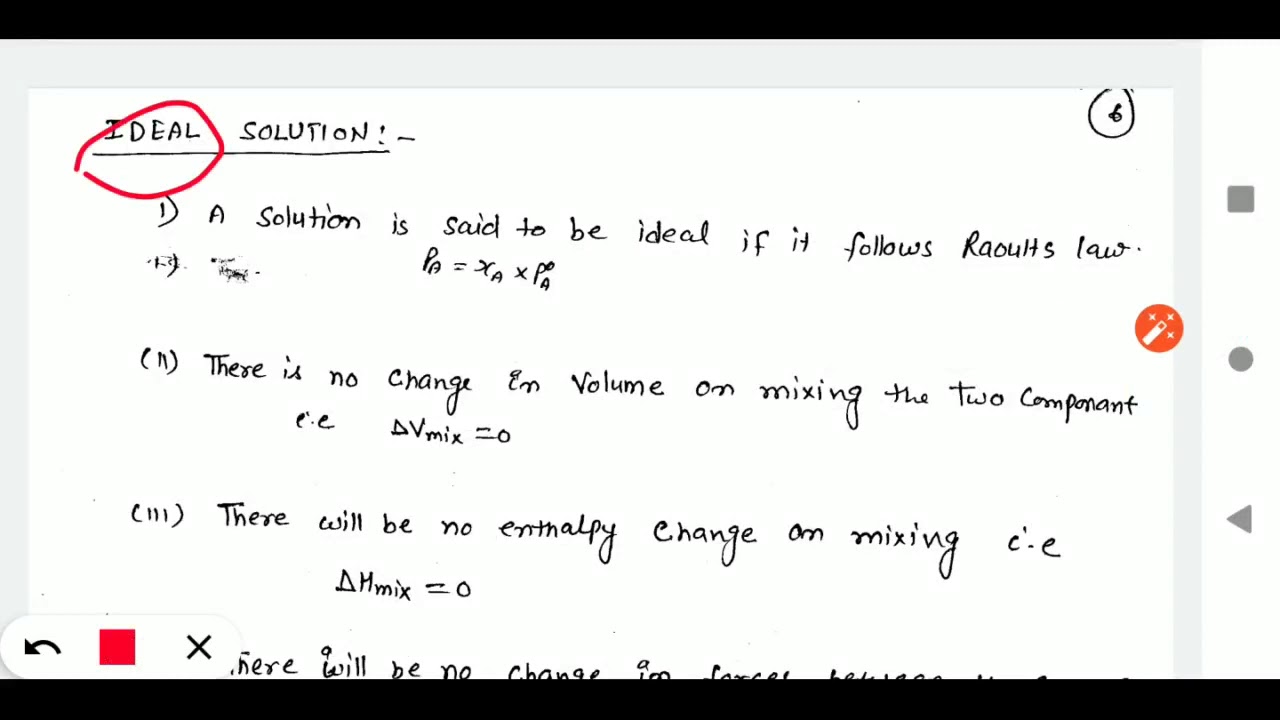 6
IDEAL SOLUTION:-
1) A solution is said to be ideal if it follows Raoults law.
P_A = x_A × P°_A
(11) There is no change in volume on mixing the two componant
i.e ΔVmix = 0
(111) There will be no enthalpy change on mixing i.e
ΔHmix = 0
There will be no change in forces between